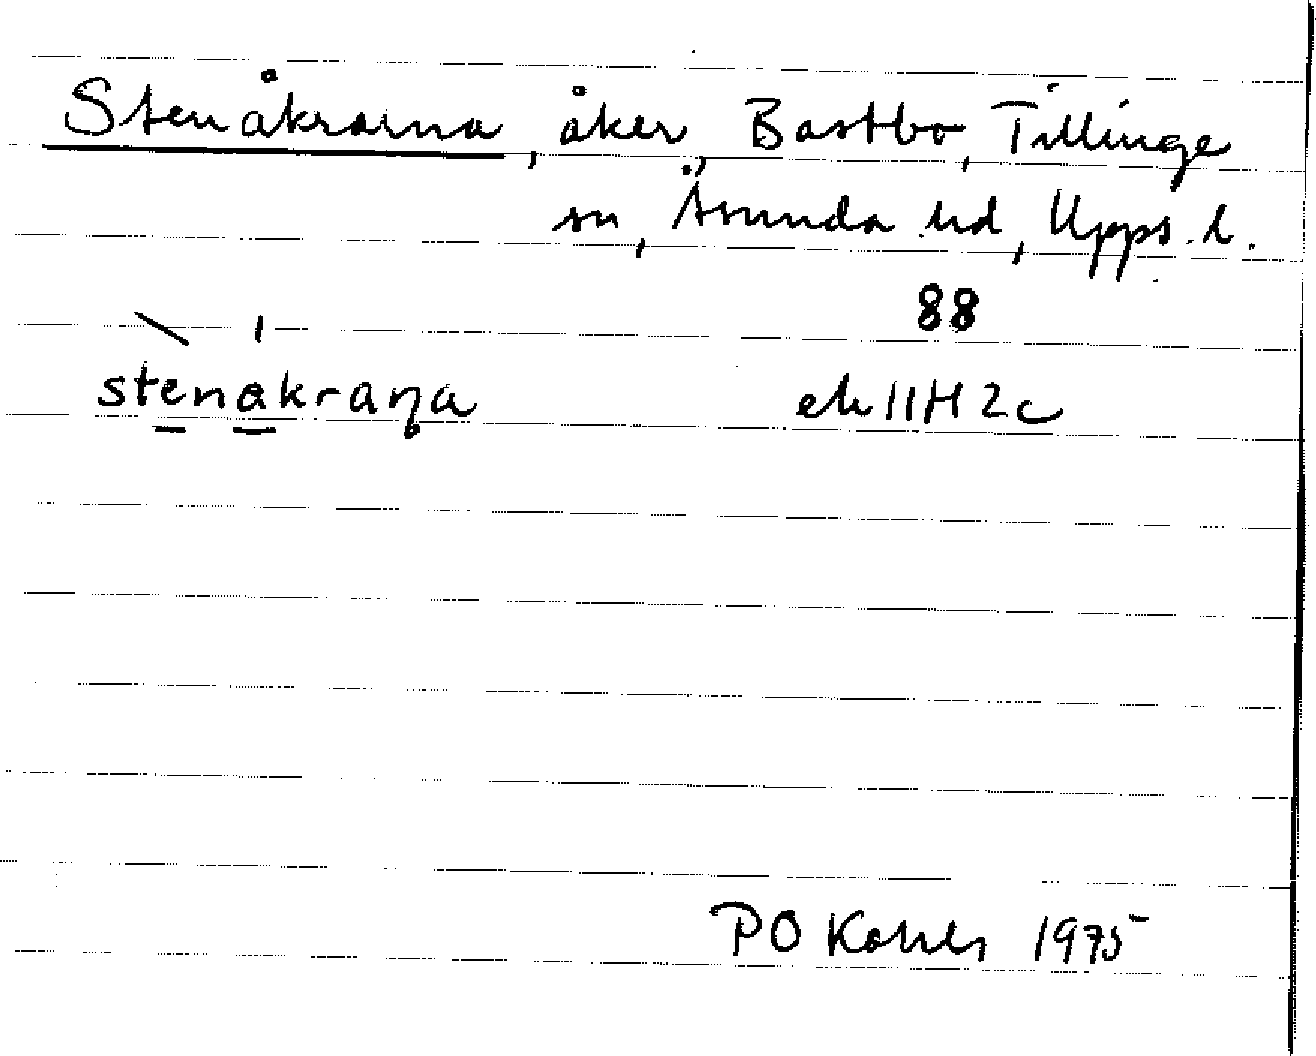 Stenåkrarna, åker, Bastbo, Tillinge
sn, Åsunda hd, Upps. l.
88
stenakraṇa
ek 11H2c
PO 1975